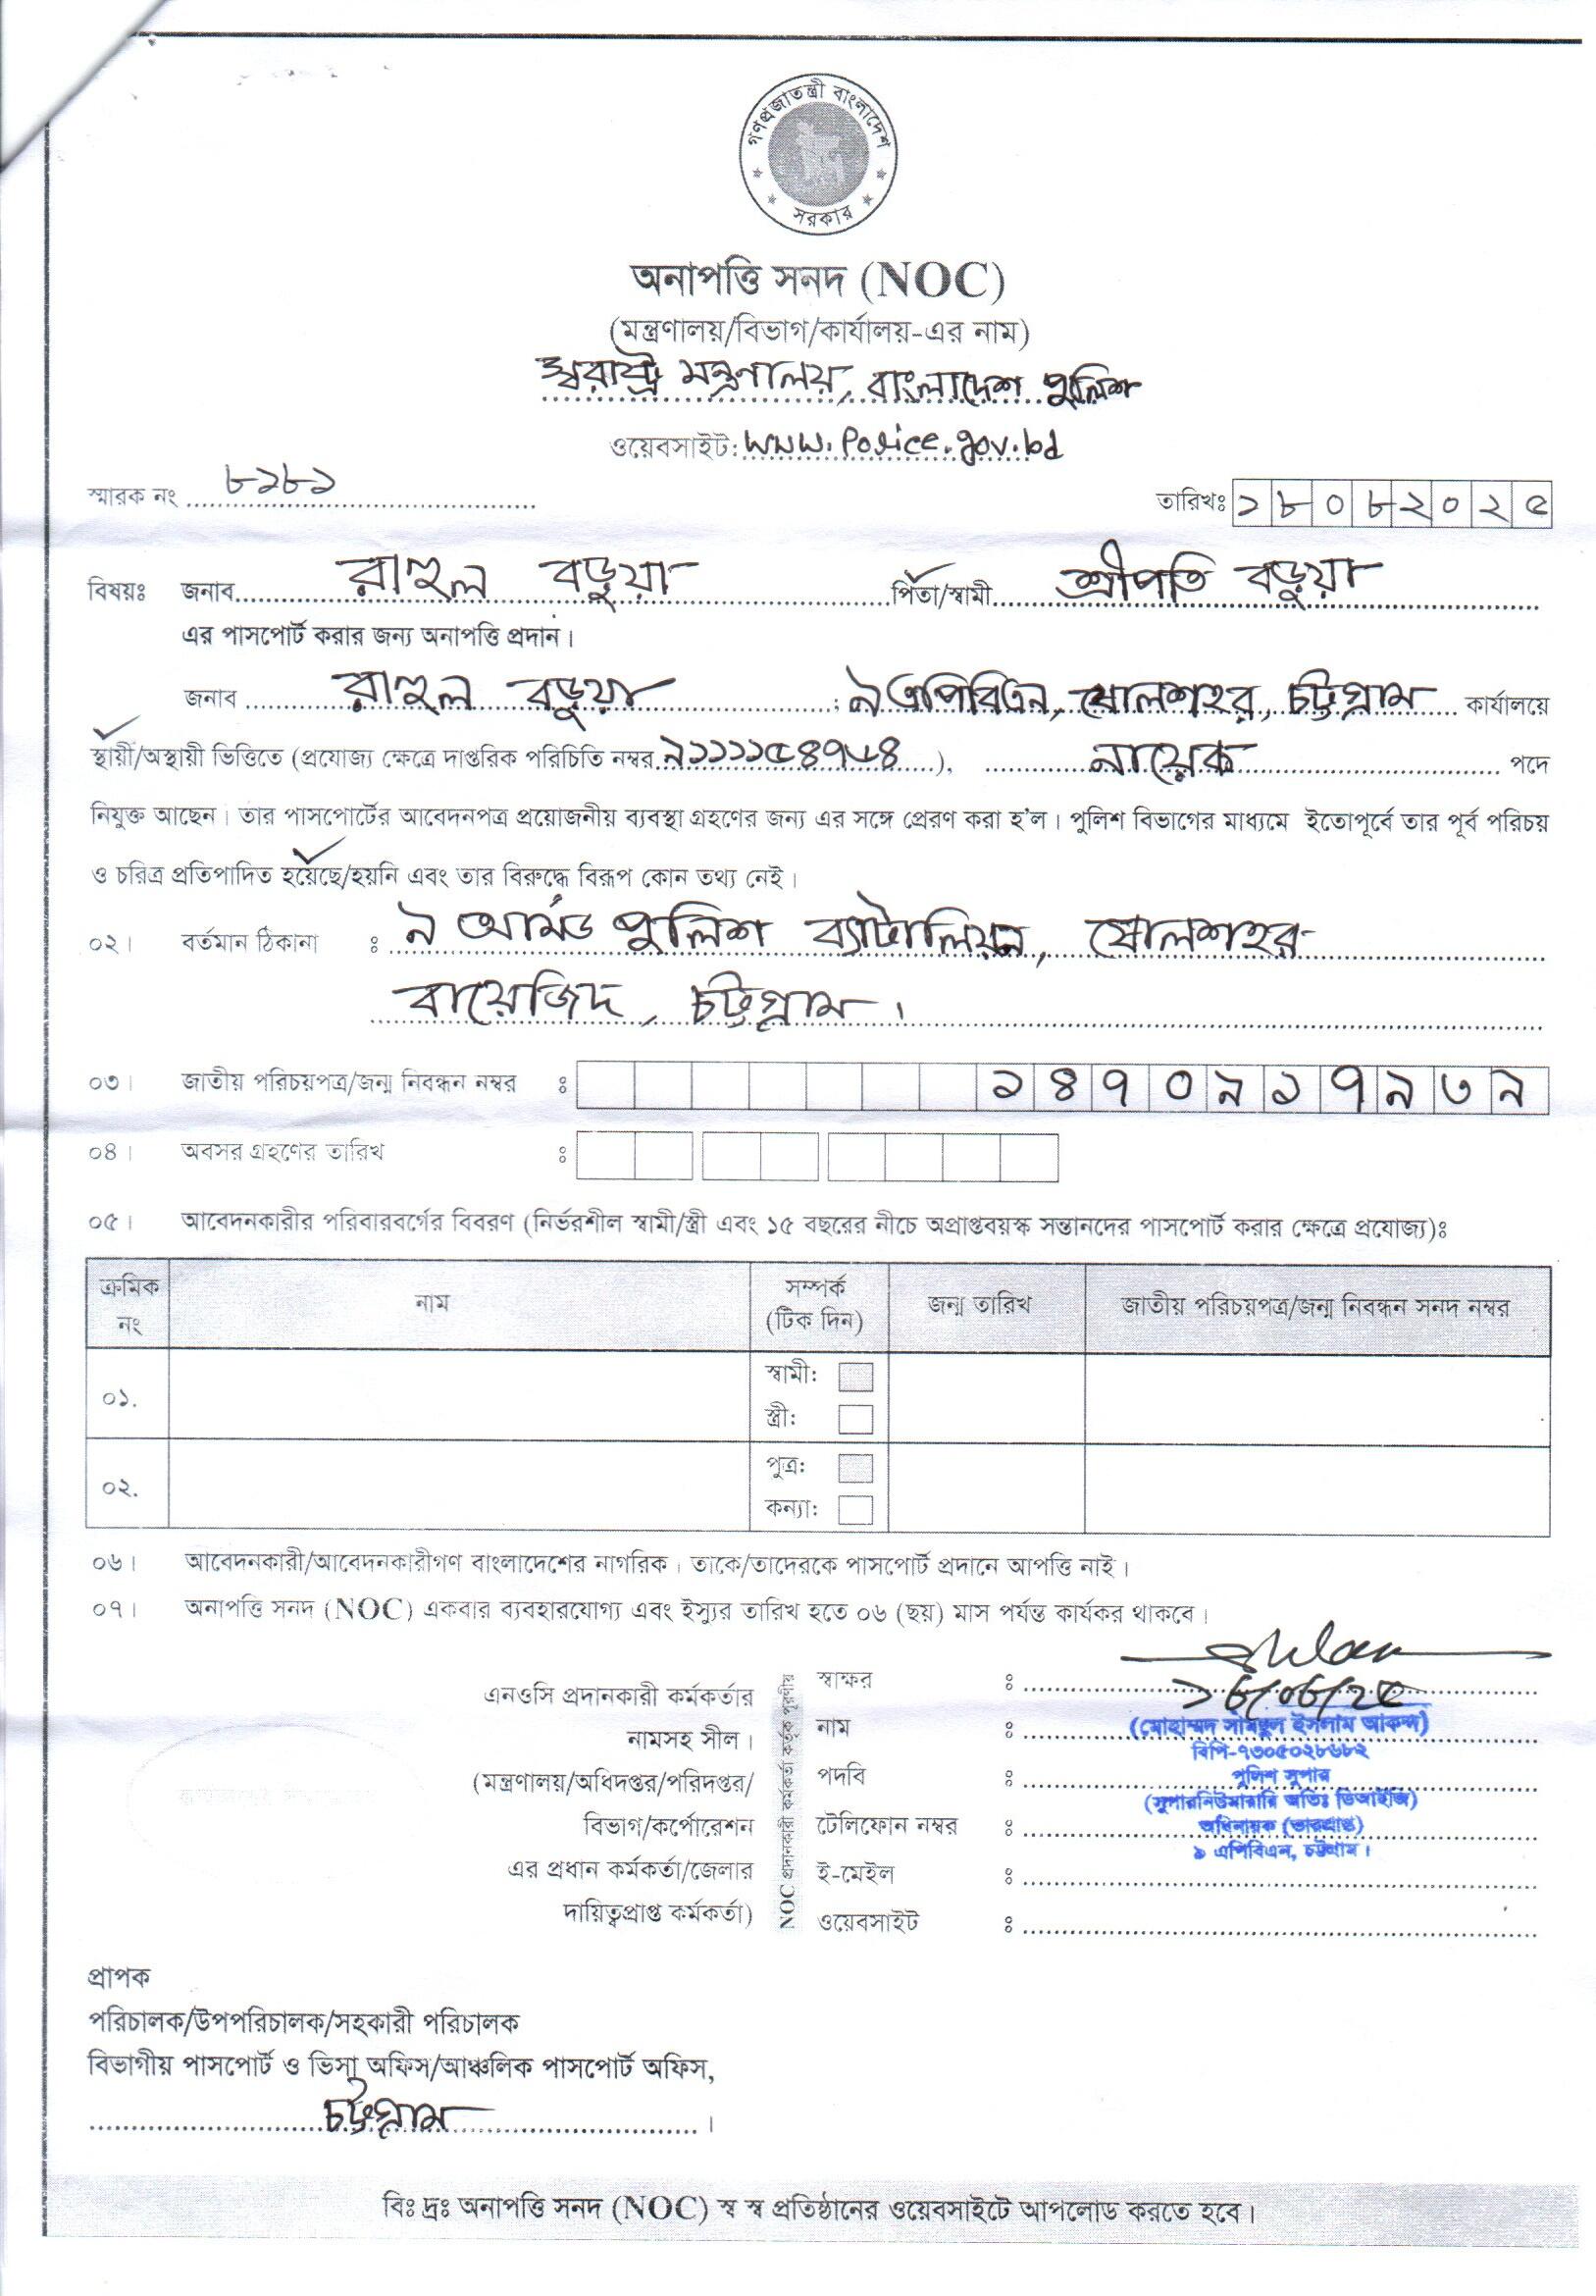 গণপ্রজাতন্ত্রী বাংলাদেশ
সরকার
অনাপত্তি সনদ (NOC)
(মন্ত্রণালয়/বিভাগ/কার্যালয়-এর নাম)
স্বরাষ্ট্র মন্ত্রনালয়, বাংলাদেশ পুলিশ
ওয়েবসাইট: www.police.gov.bd
স্মারক নং ৮১৮১
তারিখঃ ১৮০৮২০২৫
বিষয়ঃ জনাব রাহুল বড়ুয়া পিতা/স্বামী শ্রীপতি বড়ুয়া
এর পাসপোর্ট করার জন্য অনাপত্তি প্রদান।
জনাব রাহুল বড়ুয়া ; ৯ এপিবিএন, ষোলশহর, চট্টগ্রাম কার্যালয়ে
স্থায়ী/অস্থায়ী ভিত্তিতে (প্রযোজ্য ক্ষেত্রে দাপ্তরিক পরিচিতি নম্বর ), নায়েক পদে
নিযুক্ত আছেন। তার পাসপোর্টের আবেদনপত্র প্রয়োজনীয় ব্যবস্থা গ্রহণের জন্য এর সঙ্গে প্রেরণ করা হ'ল। পুলিশ বিভাগের মাধ্যমে ইতোপূর্বে তার পূর্ব পরিচয়
ও চরিত্র প্রতিপাদিত হয়েছে/হয়নি এবং তার বিরুদ্ধে বিরূপ কোন তথ্য নেই।
০২। বর্তমান ঠিকানা ঃ ৯ আর্মড পুলিশ ব্যাটালিয়ন, ষোলশহর
বায়েজিদ, চট্টগ্রাম।
০৩। জাতীয় পরিচয়পত্র/জন্ম নিবন্ধন নম্বর ঃ ১৪৭০৯১৭৯৩৯
০৪। অবসর গ্রহণের তারিখ ঃ
০৫। আবেদনকারীর পরিবারবর্গের বিবরণ (নির্ভরশীল স্বামী/স্ত্রী এবং ১৫ বছরের নীচে অপ্রাপ্তবয়স্ক সন্তানদের পাসপোর্ট করার ক্ষেত্রে প্রযোজ্য)ঃ
ক্রমিক নং নাম সম্পর্ক (টিক দিন) জন্ম তারিখ জাতীয় পরিচয়পত্র/জন্ম নিবন্ধন সনদ নম্বর
০১. স্বামী:
স্ত্রী:
০২. পুত্র:
কন্যা:
০৬। আবেদনকারী/আবেদনকারীগণ বাংলাদেশের নাগরিক। তাকে/তাদেরকে পাসপোর্ট প্রদানে আপত্তি নাই।
০৭। অনাপত্তি সনদ (NOC) একবার ব্যবহারযোগ্য এবং ইস্যুর তারিখ হতে ০৬ (ছয়) মাস পর্যন্ত কার্যকর থাকবে।
এনওসি প্রদানকারী কর্মকর্তার
নামসহ সীল।
(মন্ত্রণালয়/অধিদপ্তর/পরিদপ্তর/
বিভাগ/কর্পোরেশন
এর প্রধান কর্মকর্তা/জেলার
দায়িত্বপ্রাপ্ত কর্মকর্তা)
NOC প্রদানকারী কর্মকর্তা কর্তৃক পূরণীয়
স্বাক্ষর ঃ ১৮/০৮/২৫
নাম ঃ (মোহাম্মদ সামছুল ইসলাম আকন্দ)
বিপি-৭৩০৫০২৮৬৮২
পদবি ঃ পুলিশ সুপার
(সুপারনিউমারারি অতিঃ ডিআইজি)
টেলিফোন নম্বর ঃ অধিনায়ক (ভারপ্রাপ্ত)
৯ এপিবিএন, চট্টগ্রাম।
ই-মেইল ঃ
ওয়েবসাইট ঃ
প্রাপক
পরিচালক/উপপরিচালক/সহকারী পরিচালক
বিভাগীয় পাসপোর্ট ও ভিসা অফিস/আঞ্চলিক পাসপোর্ট অফিস,
চট্টগ্রাম।
বিঃ দ্রঃ অনাপত্তি সনদ (NOC) স্ব স্ব প্রতিষ্ঠানের ওয়েবসাইটে আপলোড করতে হবে।